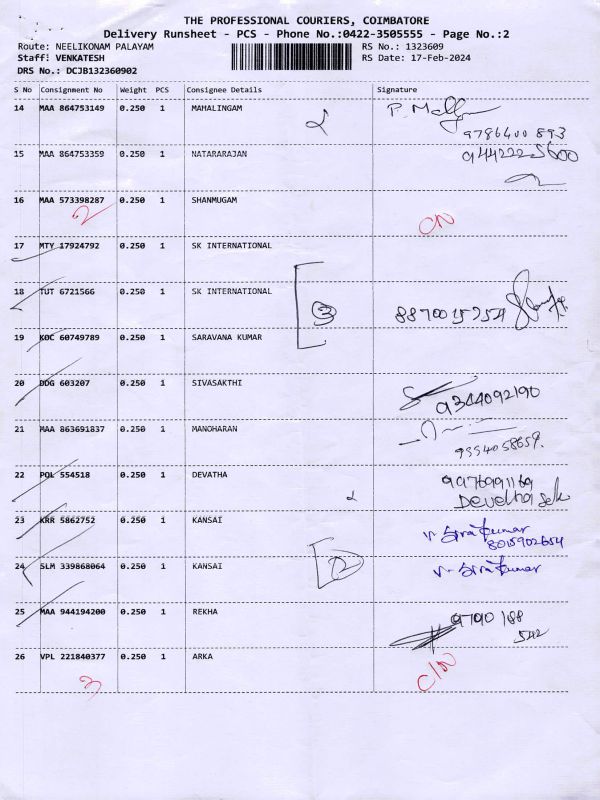 THE PROFESSIONAL COURIERS, COIMBATORE
Delivery Runsheet - PCS - Phone No.:0422-3505555 - Page No.:2
Route: NEELIKONAM PALAYAM RS No.: 1323609
Staff: VENKATESH RS Date: 17-Feb-2024
DRS No.: DCJB132360902
S No Consignment No Weight PCS Consignee Details Signature
14 MAA 864753149 0.250 1 MAHALINGAM
9786400893
15 MAA 864753359 0.250 1 NATARARAJAN 9442225600
16 MAA 573398287 0.250 1 SHANMUGAM
2 CN
17 MTY 17924792 0.250 1 SK INTERNATIONAL
18 TUT 6721566 0.250 1 SK INTERNATIONAL
3 8870015254
19 KOC 60749789 0.250 1 SARAVANA KUMAR
20 DDG 603207 0.250 1 SIVASAKTHI
9344092190
21 MAA 863691837 0.250 1 MANOHARAN
9994058659.
22 POL 554518 0.250 1 DEVATHA 9976991169
23 KRR 5862752 0.250 1 KANSAI V. Sivakumar
8015902654
24 SLM 339868064 0.250 1 KANSAI V. Sivakumar
2
25 MAA 944194200 0.250 1 REKHA 9790188
542
26 VPL 221840377 0.250 1 ARKA
3 C/N